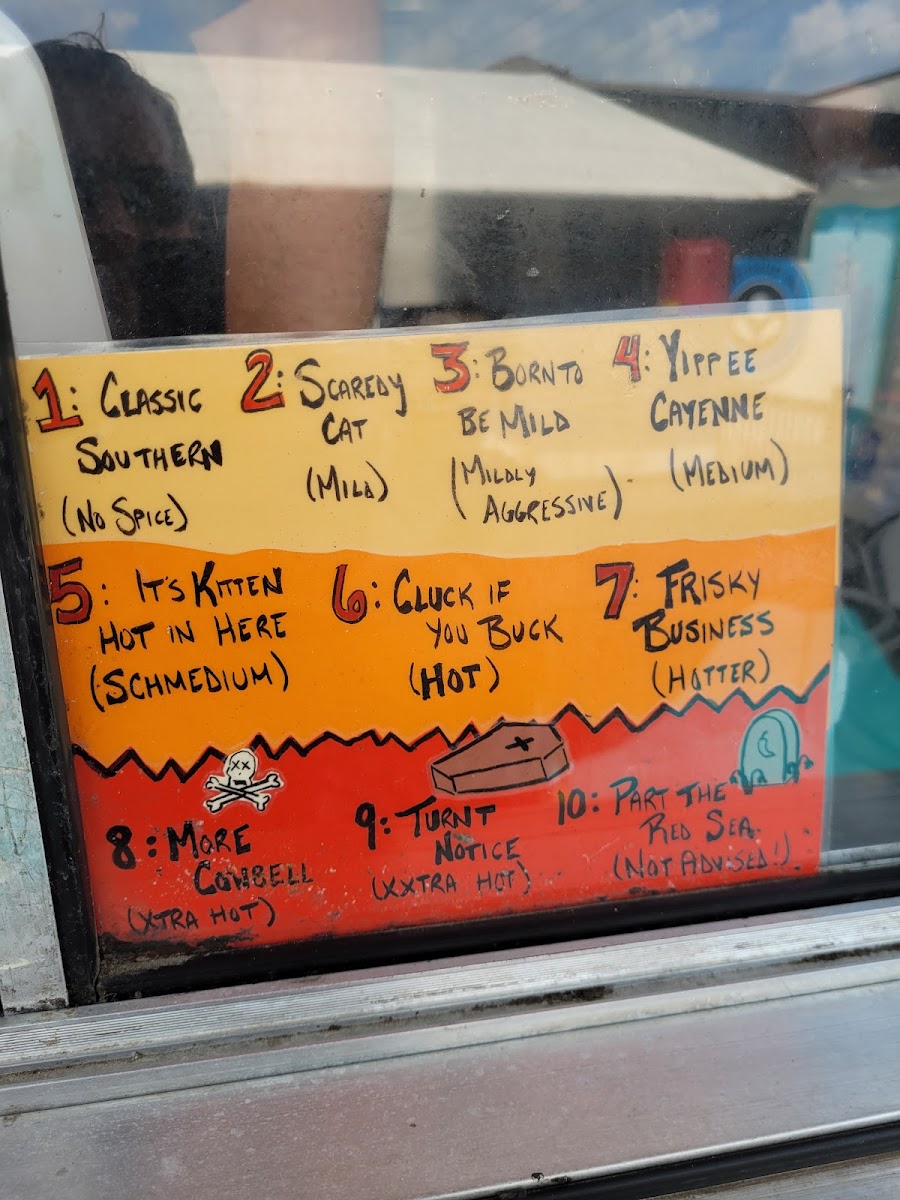 1: CLASSIC
SOUTHERN
(NO SPICE)
2: SCAREDY
CAT
(MILD)
3: BORN TO
BE MILD
(MILDLY
AGGRESSIVE)
4: YIPPEE
CAYENNE
(MEDIUM)
5: IT'S KITTEN
HOT IN HERE
(SCHMEDIUM)
6: CLUCK IF
YOU BUCK
(HOT)
7: FRISKY
BUSINESS
(HOTTER)
8: MORE
COWBELL
(XTRA HOT)
9: TURNT
NOTICE
(XXTRA HOT)
10: PART THE
RED SEA
(NOT ADVISED!)